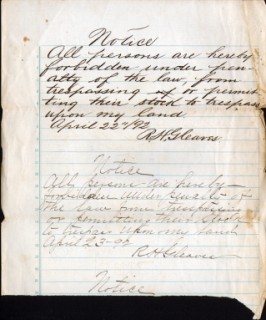 Notice
All persons are hereby
forbidden under pen-
alty of the law, from
trespassing or permit
ting their stock to trespass
upon my land.
April 22 /92
R. H. Gleaves.
Notice
All persons are hereby
forbidden under penalty of
the law from trespassing
or permitting their stock
to trespass upon my land
April 23-92
R H Gleaves
Notice